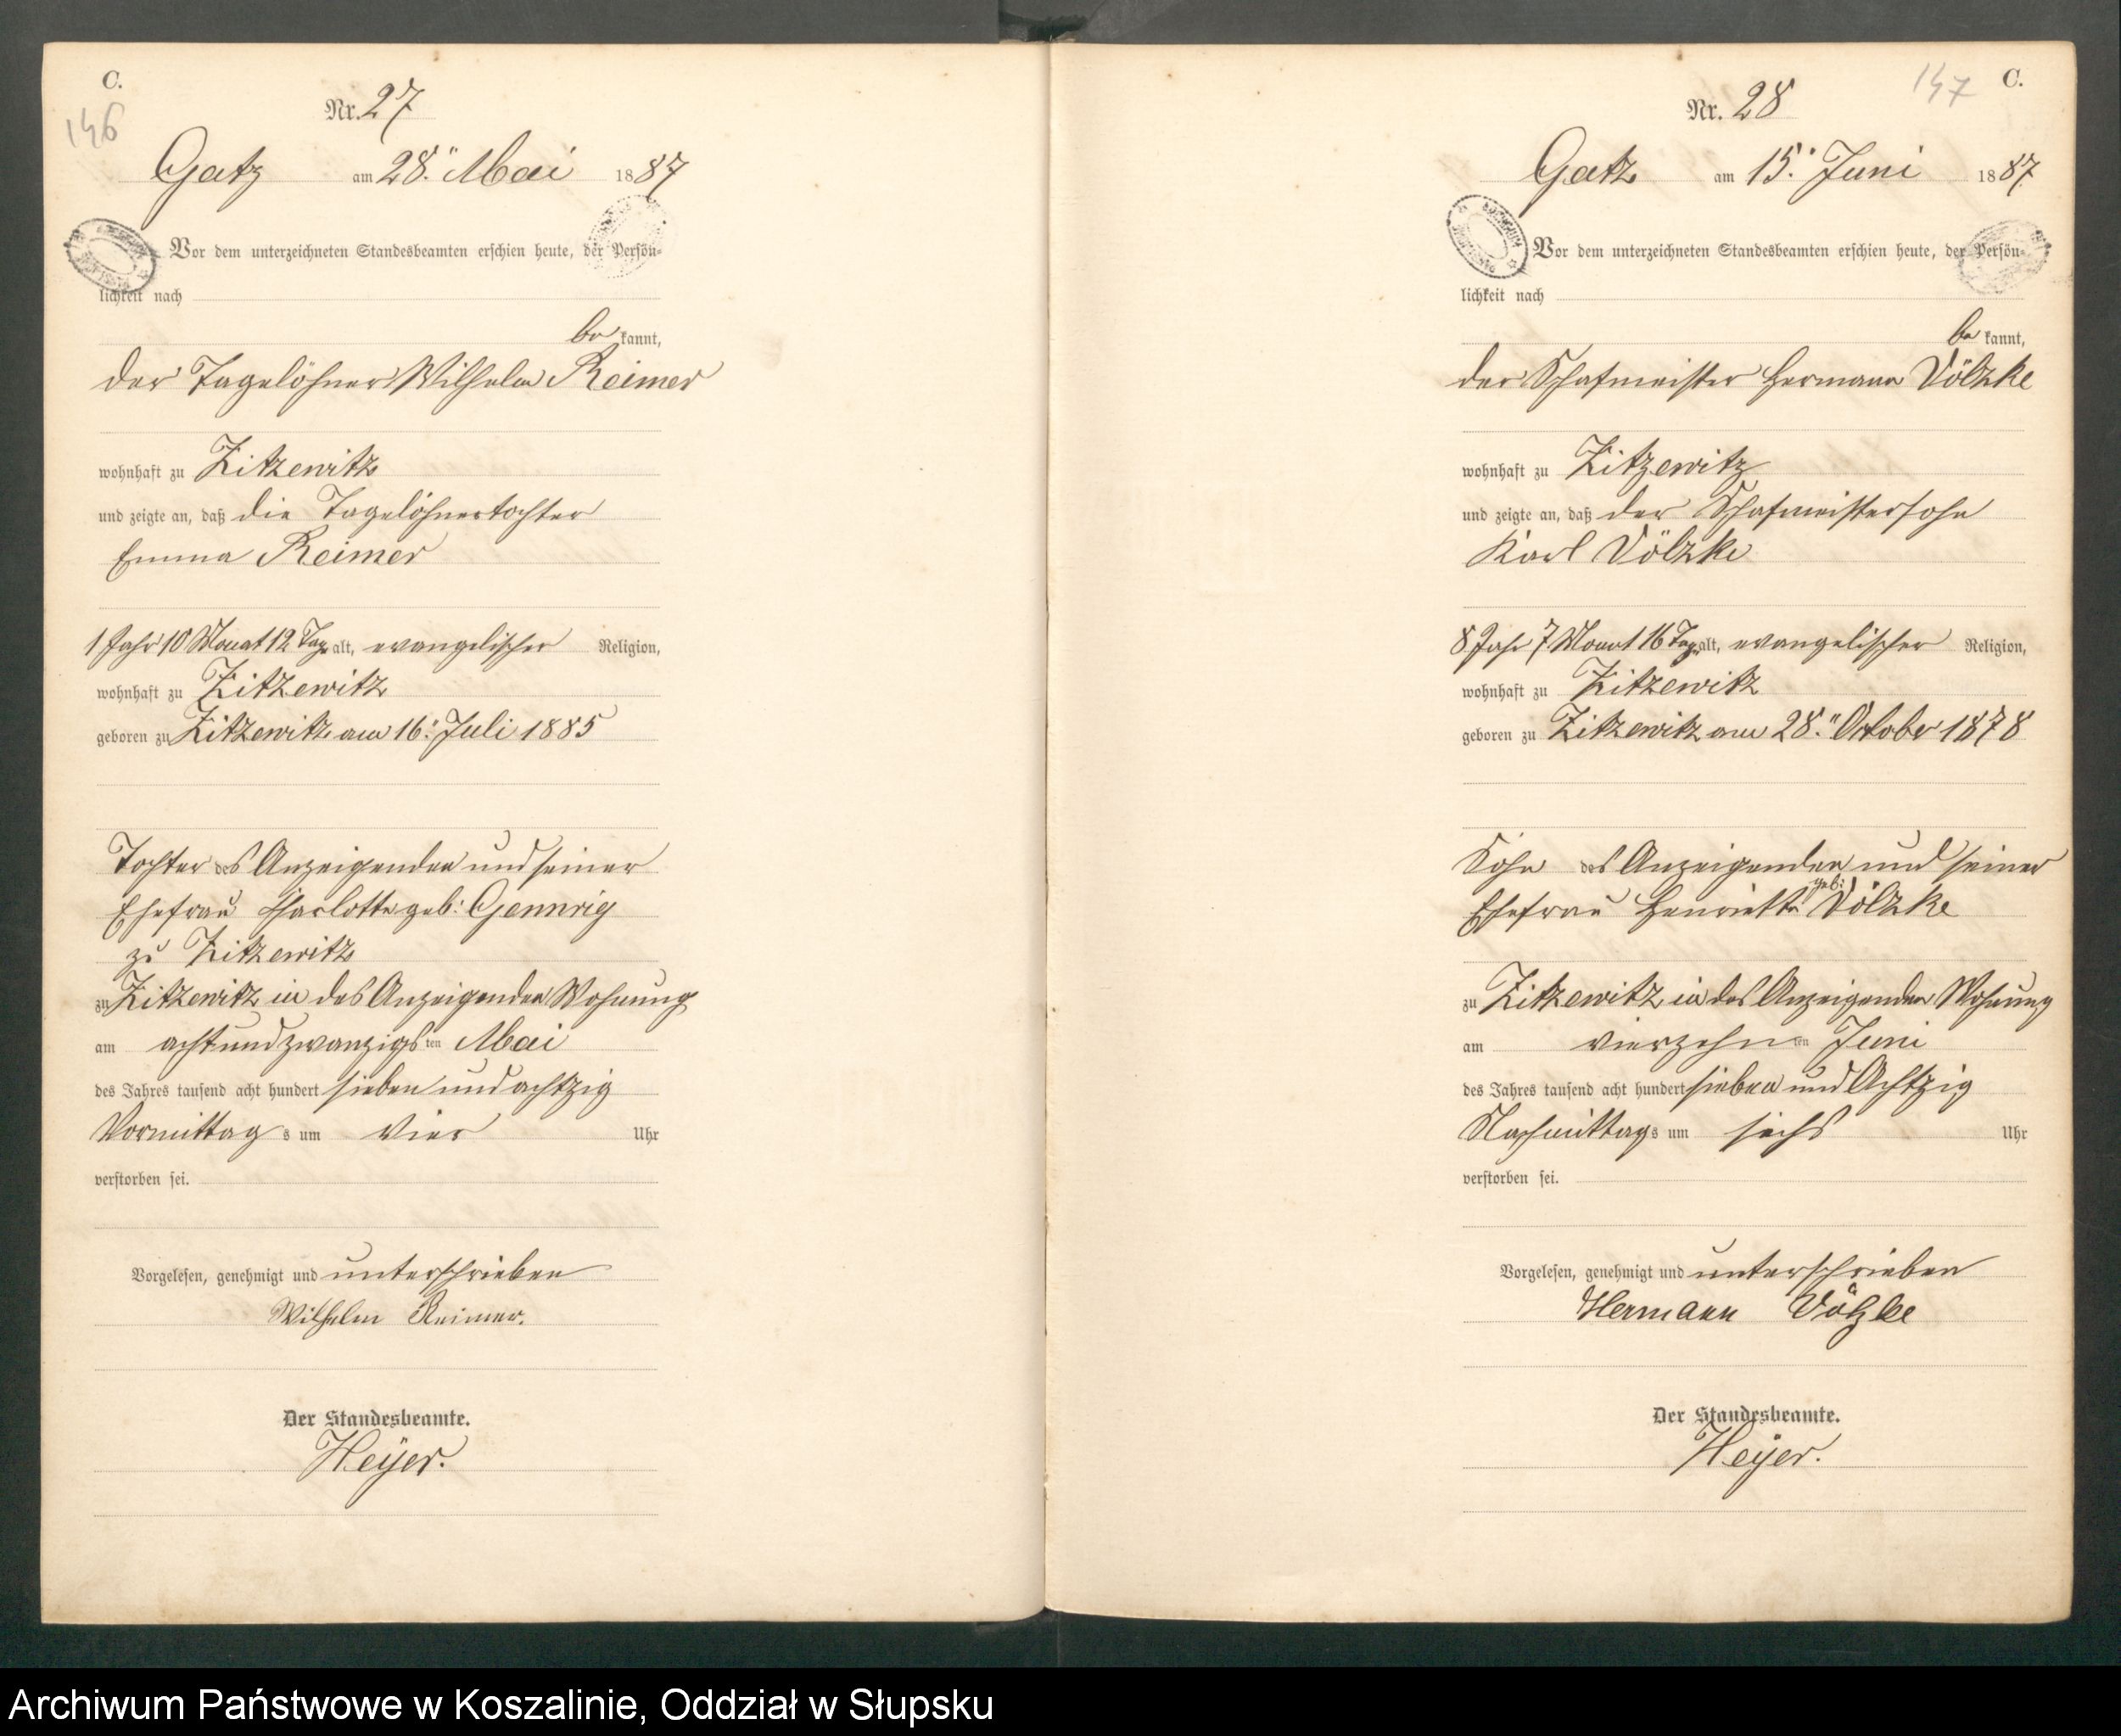 C.
146
Nr. 27
Gatz am 28. Mai 1887
Vor dem unterzeichneten Standesbeamten erschien heute, der Persön-
lichkeit nach
be kannt,
der Tagelöhner Wilhelm Reimer
wohnhaft zu Zitzewitz
und zeigte an, daß die Tagelöhnertochter
Emma Reimer
1 Jahr 10 Monat 12 Tage alt, evangelischer Religion,
wohnhaft zu Zitzewitz
geboren zu Zitzewitz am 16. Juli 1885
Tochter des Anzeigenden und seiner
Ehefrau Charlotte geb: Gennrig
zu Zitzewitz
zu Zitzewitz in des Anzeigenden Wohnung
am achtundzwanzigsten Mai
des Jahres tausend acht hundert sieben und achtzig
Vormittags um vier Uhr
verstorben sei.
Vorgelesen, genehmigt und unterschrieben
Wilhelm Reimer.
Der Standesbeamte.
Heyer.
147 C.
Nr. 28
Gatz am 15. Juni 1887.
Vor dem unterzeichneten Standesbeamten erschien heute, der Persön-
lichkeit nach
be kannt,
der Schafmeister Hermann Völzke
wohnhaft zu Zitzewitz
und zeigte an, daß der Schafmeistersohn
Karl Völzke
8 Jahr 7 Monat 16 Tage alt, evangelischer Religion,
wohnhaft zu Zitzewitz
geboren zu Zitzewitz am 28. October 1878
Sohn des Anzeigenden und seiner
Ehefrau Henriette geb: Völzke
zu Zitzewitz in des Anzeigenden Wohnung
am vierzehnten Juni
des Jahres tausend acht hundert sieben und Achtzig
Nachmittags um sechs Uhr
verstorben sei.
Vorgelesen, genehmigt und unterschrieben
Hermann Völzke
Der Standesbeamte.
Heyer.
Archiwum Państwowe w Koszalinie, Oddział w Słupsku